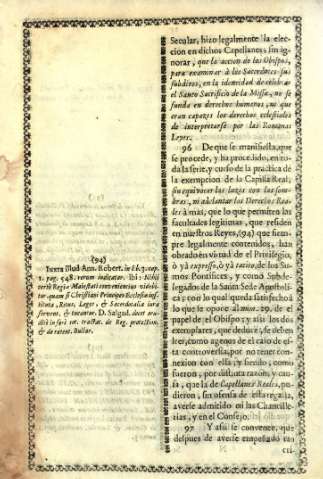 Secular, hizo legalmente la elec-
cion en dichos Capellanes, sin ig-
norar, que la accion de los Obispos,
para examinar à los Sacerdotes sus
subditos, en la idoneidad de celebrar
el Santo Sacrificio de la Missa, no se
funda en derechos humanos, ni que
eran capazes los derechos celestiales
de interpretarse por las Romanas
Leyes.
96 De que se manifiesta, que
se procede, y ha procedido, en to-
da la serie, y curso de la practica de
la exempcion de la Capilla Real,
sin equivocar las luzes con las som-
bras, ni adelantar los Derechos Rea-
les à mas, que lo que permiten las
facultades legitimas, que residen
en nuestros Reyes, (94) que siem-
pre legalmente contenidos, han
obrado en virtud de el Privilegio,
ò yà expresso, ò yà tacito, de los Su-
mos Pontifices, y como Subde-
legados de la Santa Sede Apostoli-
ca; con lo qual queda satisfecho à
lo que se opone al num. 29. de el
papel de el Obispo; y assi los dos
exemplares, que deduce, se deben
leer, como agenos de el caso de es-
ta controversia, por no tener cone-
xion con ella; y siendo, como
fueron, por distinta razon, y cau-
sa, que la de Capellanes Reales, pu-
dieron, sin ofensa de esta regalia,
averse admitido en las Chancille-
rias, y en el Consejo.
97 Y assi se convence, que
despues de averse empeñado tan
(94)
Iuxta illud Ann. Robert. in lib. 3. cap.
1. pag. 548. rerum iudicatar. ibi: Nihil
verò Regiæ Maiestati convenientius videbi-
tur quam si Christiani Principes Ecclesiæ insti-
tuta, Ritus, Leges, & Sacerdotalia iura
forment, & tueantur. D. Salgad. docet eru-
ditè in suis cu. tractat. de Reg. protection,
& de retent. Bullar.